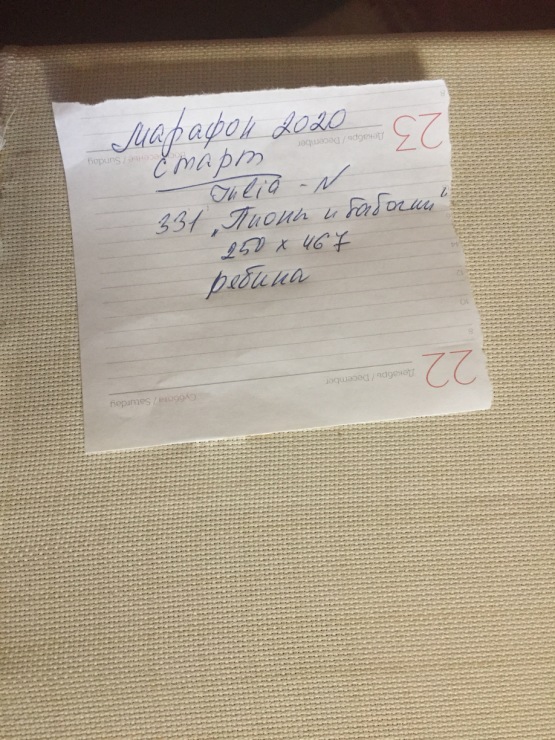 Марафон 2020
старт
Julia - N
331 „Пионы и бабочки"
250 x 467
рябина
23
Декабрь / December
Воскресенье / Sunday
22
Декабрь / December
Суббота / Saturday